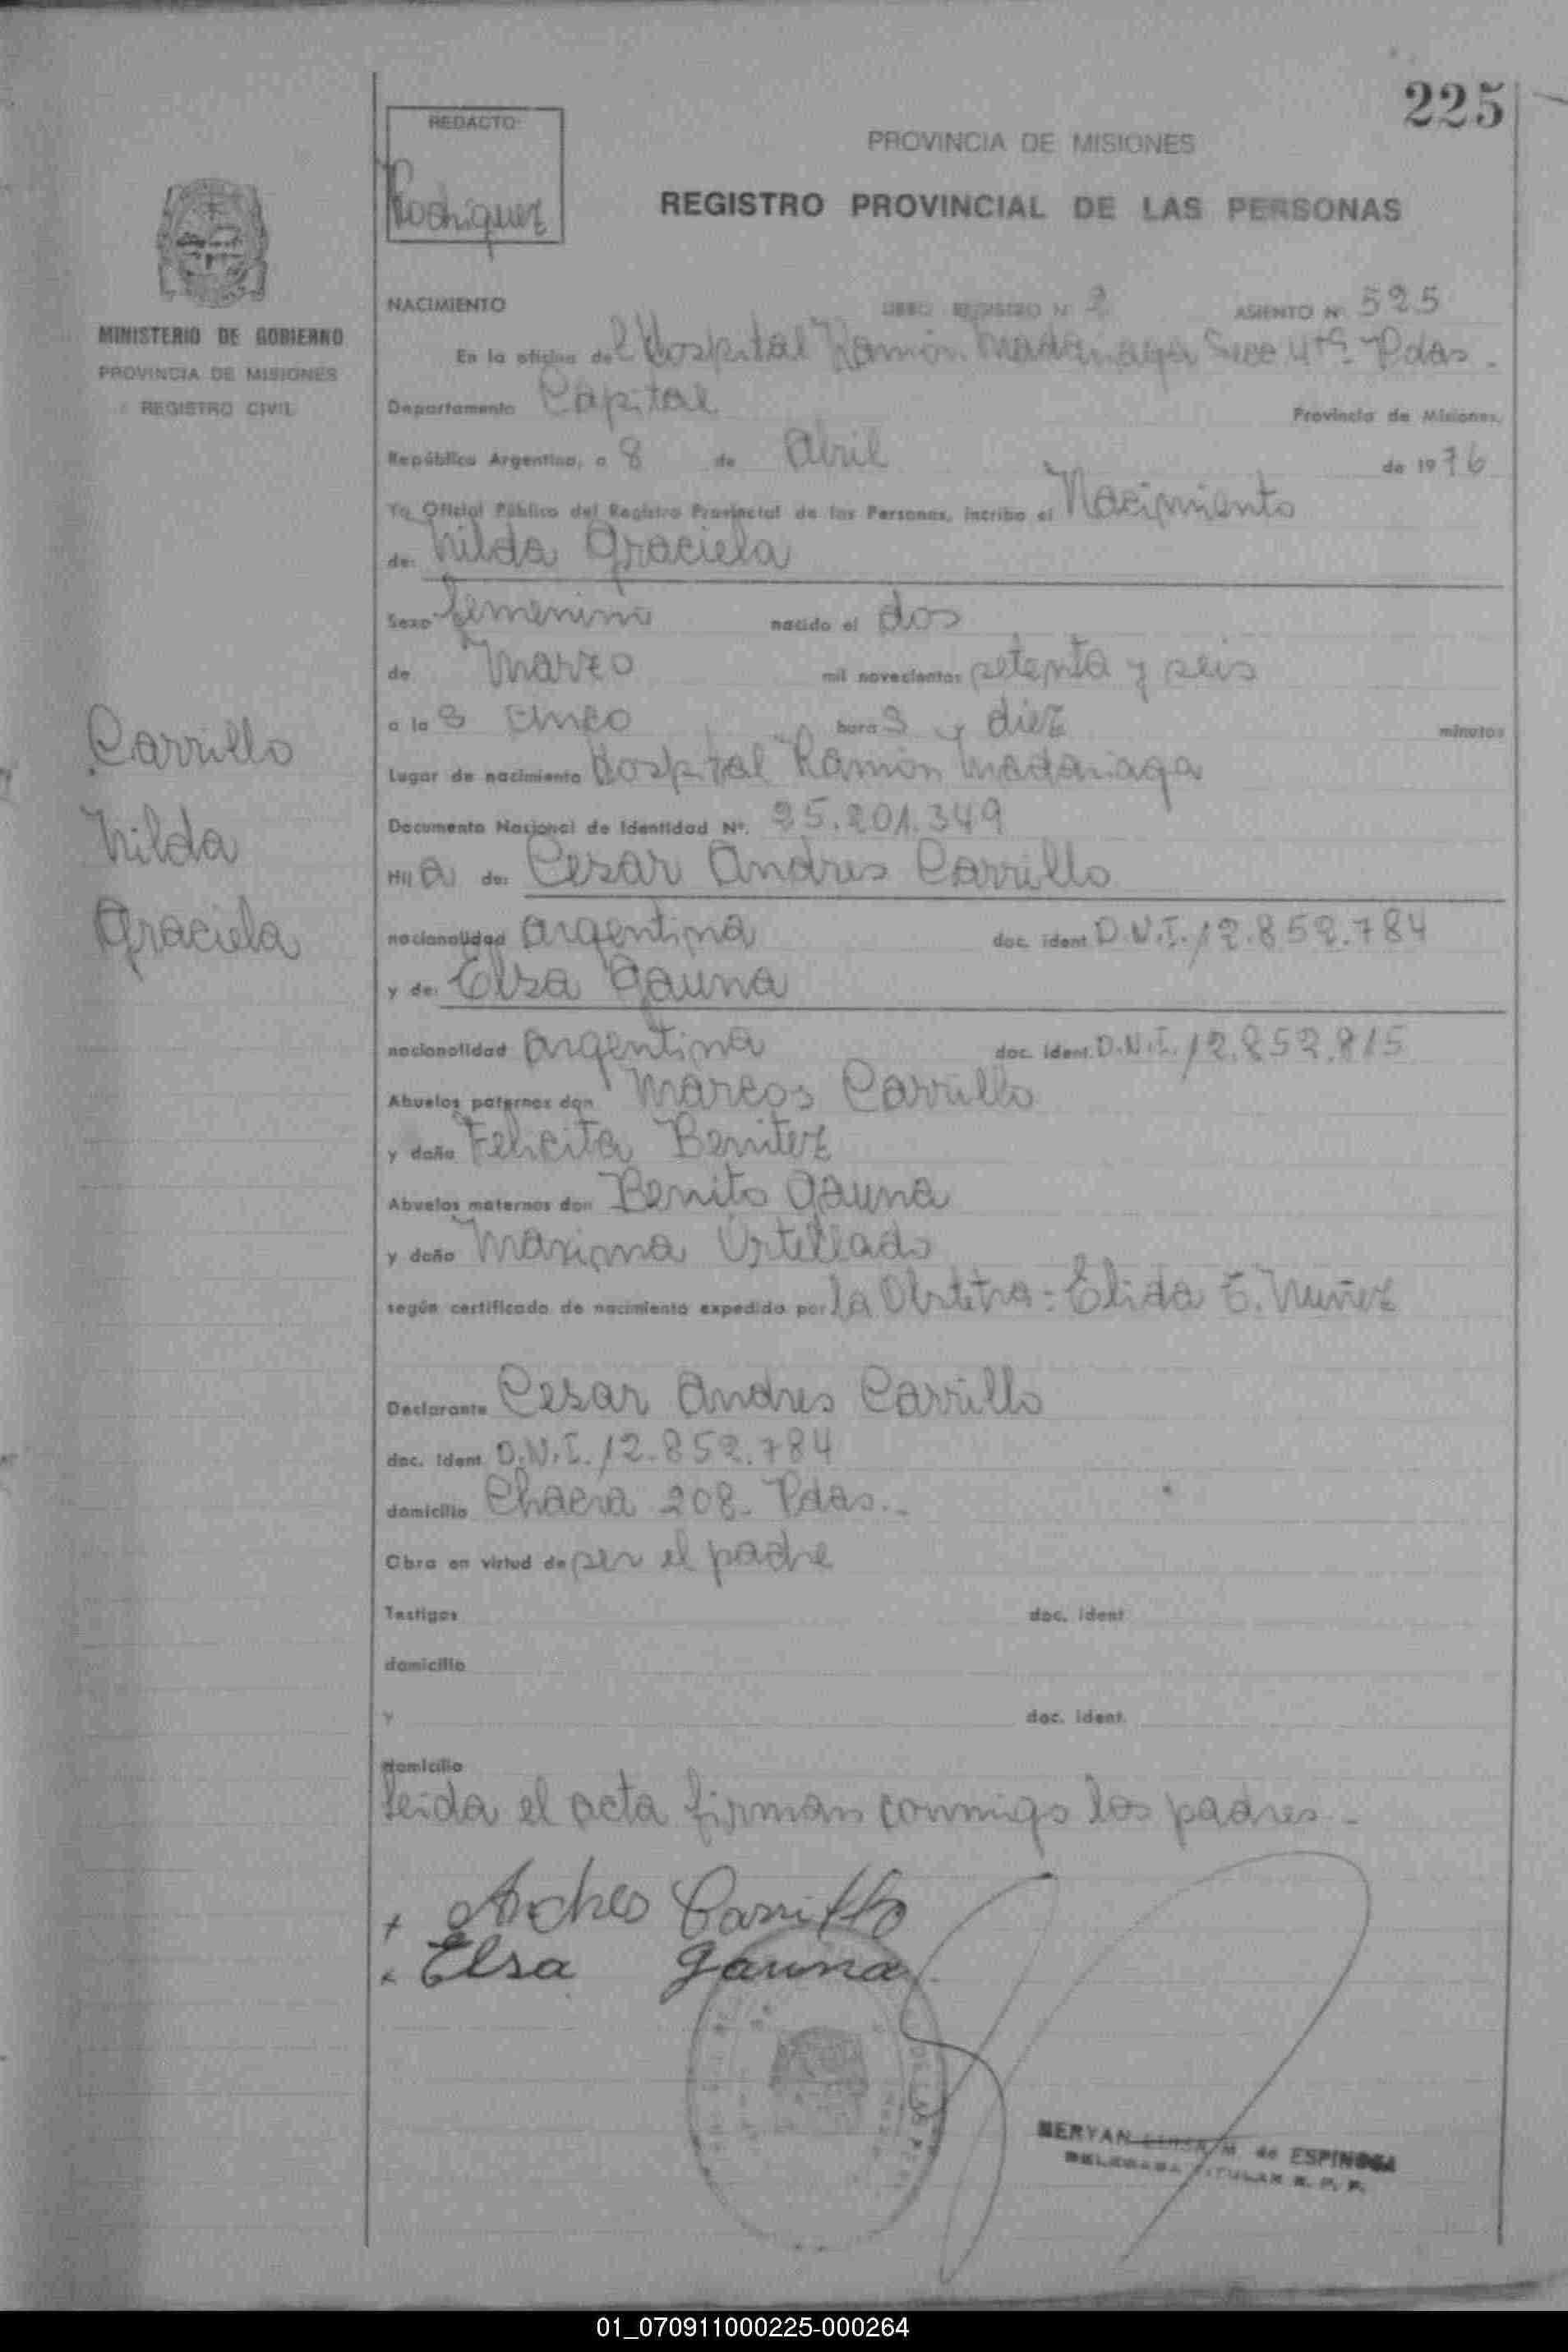 225
REDACTO:
Rodriguez
PROVINCIA DE MISIONES
REGISTRO PROVINCIAL DE LAS PERSONAS
MINISTERIO DE GOBIERNO
PROVINCIA DE MISIONES
REGISTRO CIVIL
NACIMIENTO LIBRO REGISTRO Nº 2 ASIENTO Nº 525
En la oficina del Hospital Ramón Madariaga Secc 4ta Pdas.
Departamento Capital Provincia de Misiones,
República Argentina, a 8 de Abril de 1976
Yo, Oficial Público del Registro Provincial de las Personas, incribo el Nacimiento
de: Nilda Graciela
Sexo femenino nacido el dos
de Marzo mil novecientos setenta y seis
a las cinco horas y diez minutos
Lugar de nacimiento Hospital Ramón Madariaga
Documento Nacional de Identidad Nº. 25.201.349
Hija de: Cesar Andres Carrillo
nacionalidad argentina doc. ident. D.N.I. 12.852.784
y de: Elsa Gauna
nacionalidad argentina doc. ident. D.N.I. 12.852.815
Abuelos paternos don Marcos Carrillo
y doña Felicita Benitez
Abuelos maternos don Benito Gauna
y doña Maxima
según certificado de nacimiento expedido por la Obstetra: Elida E. Nuñez
Carrillo
Nilda
Graciela
Declarante Cesar Andres Carrillo
doc. ident. D.N.I. 12.852.784
domicilio Chacra 208- Pdas.-
Obra en virtud de ser el padre
Testigos doc. ident
domicilio
y doc. ident.
domicilio
Leida el acta firman conmigo los padres-
+ Andres Carrillo
x Elsa Gauna
M. de ESPINOSA
DELEGADA TITULAR R. P. P.
01_070911000225-000264